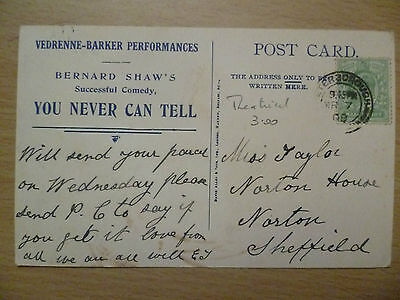 VEDRENNE-BARKER PERFORMANCES
BERNARD SHAW'S
Successful Comedy,
YOU NEVER CAN TELL
Will send your parcel
on Wednesday please
send P.C to say if
you get it love from
all we are all well EJ
POST CARD.
THE ADDRESS ONLY TO BE
WRITTEN HERE.
Theatrical
3.00
Miss Taylor
Norton House
Norton
Sheffield